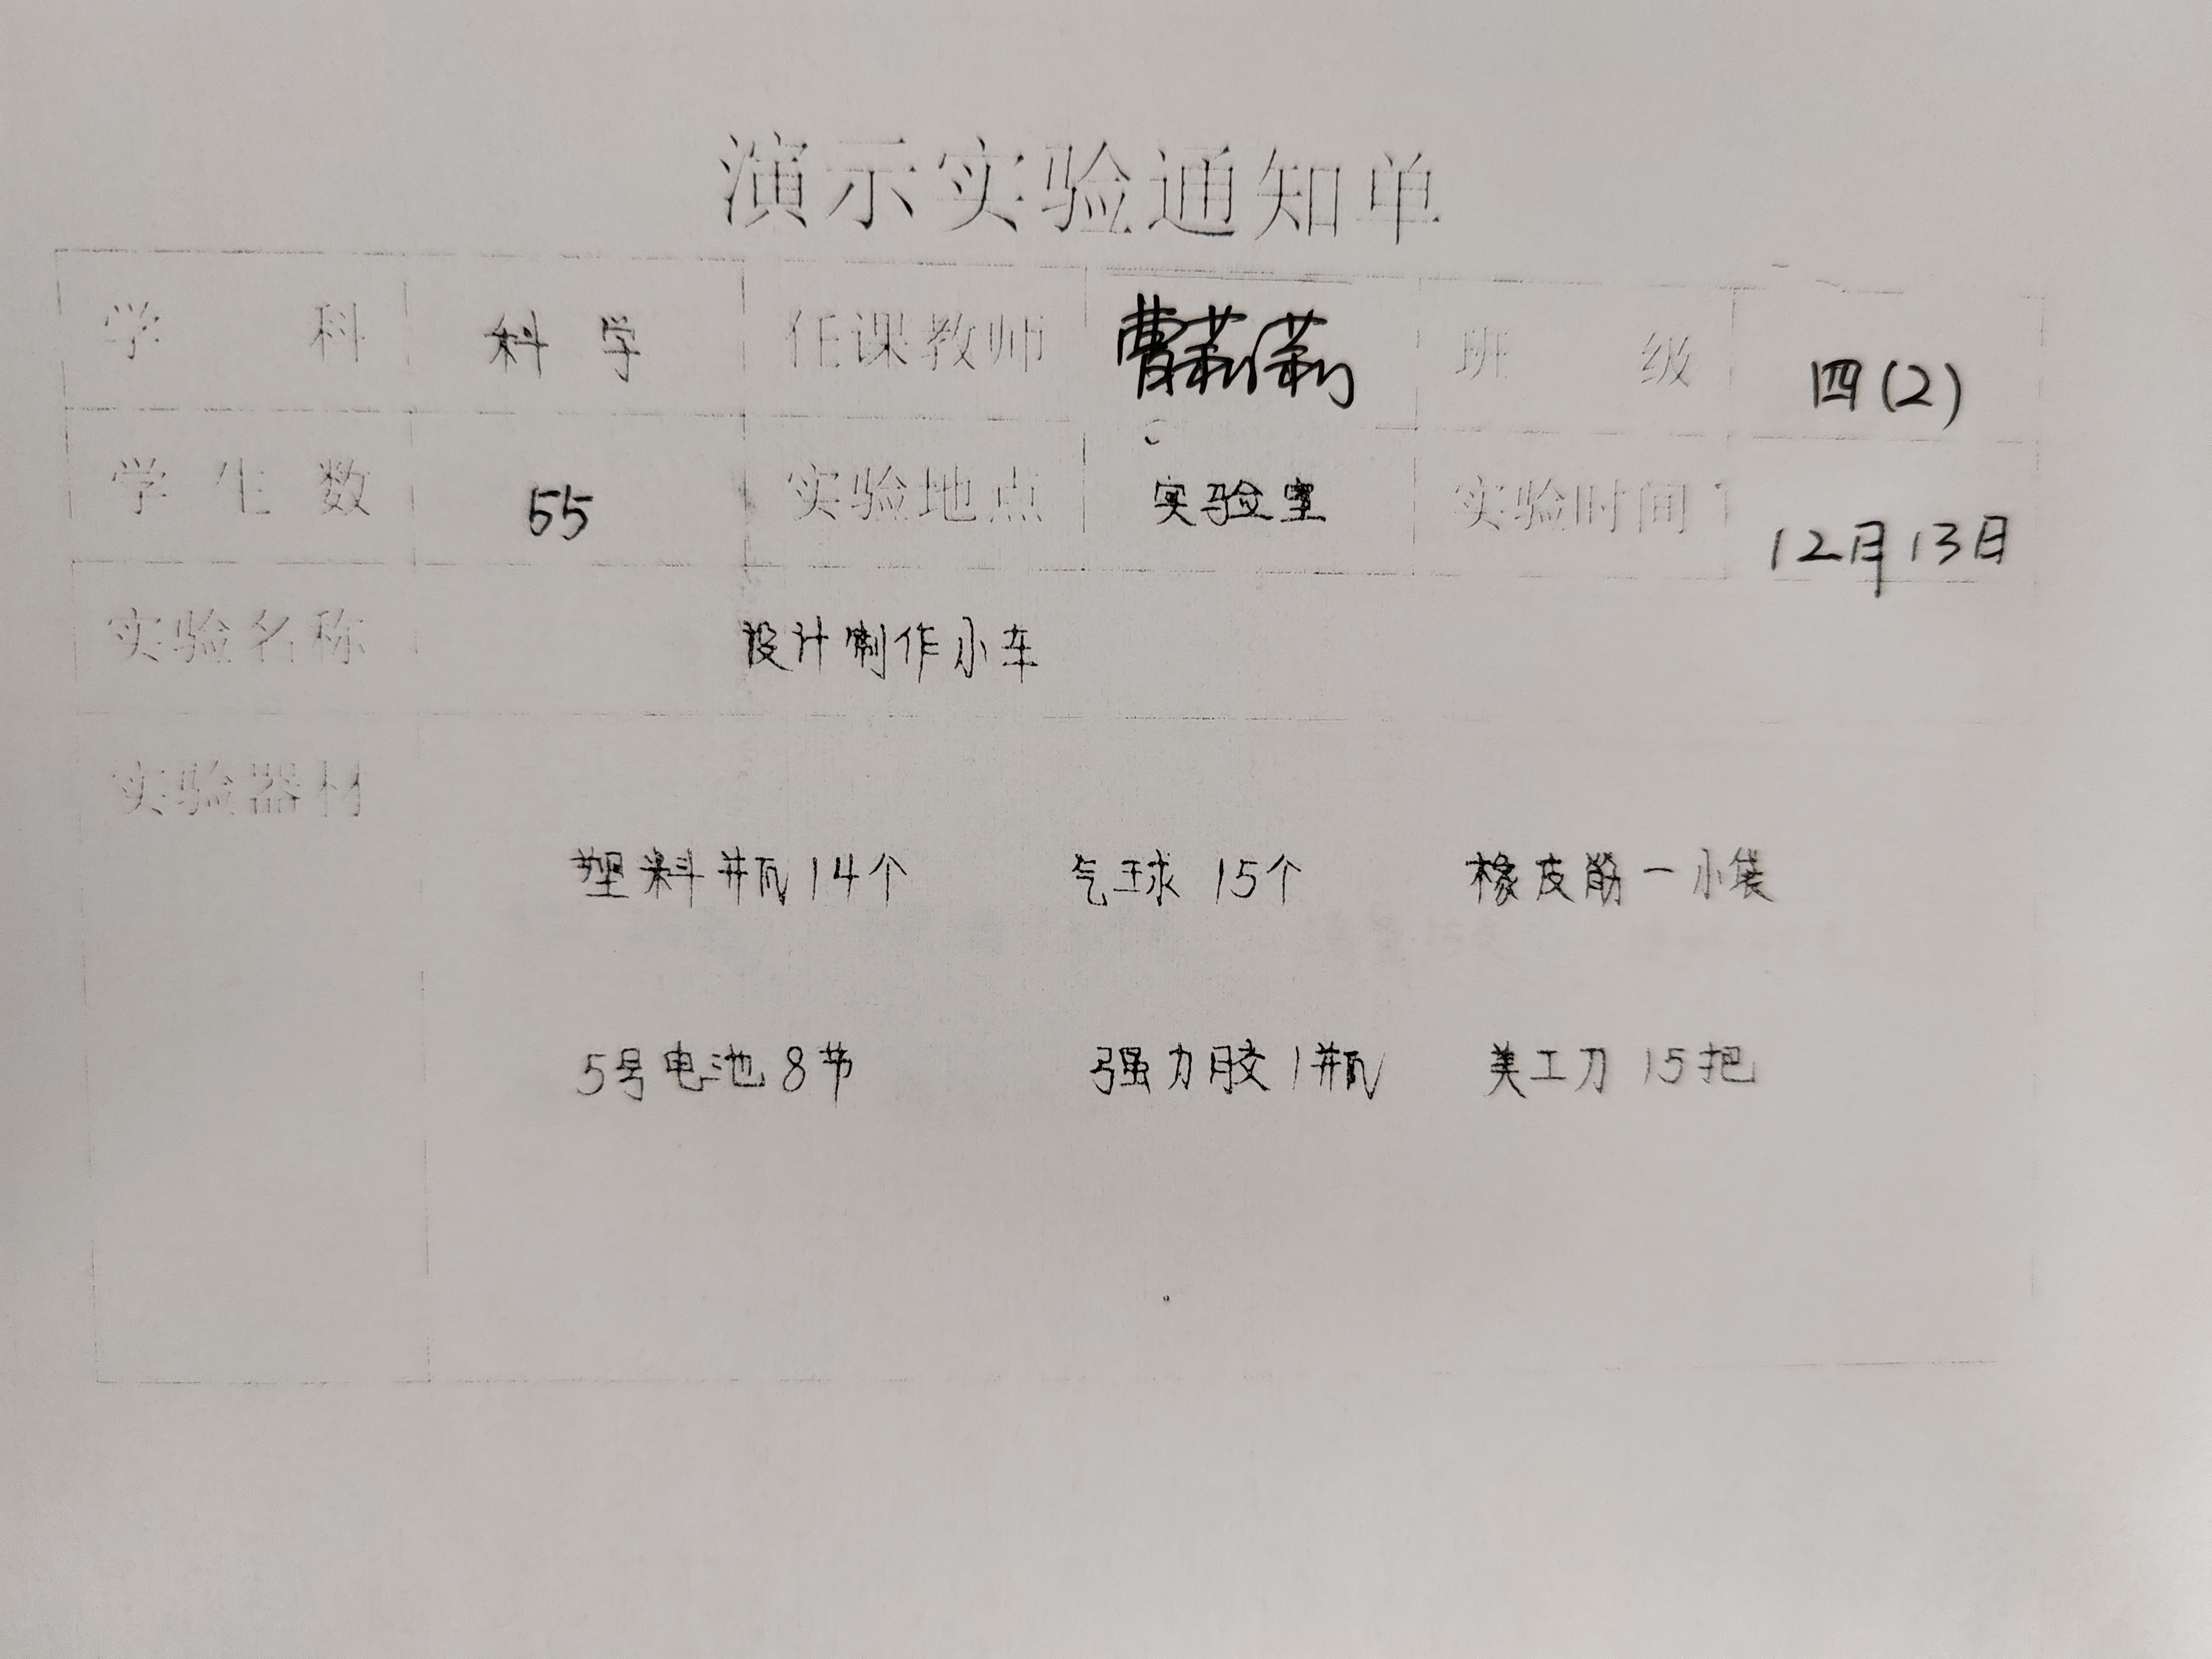 演示实验通知单
学科 科学 任课教师 曹莉莉 班级 四(2)
学生数 55 实验地点 实验室 实验时间 12月13日
实验名称 设计制作小车
实验器材
塑料瓶14个 气球 15个 橡皮筋一小袋
5号电池8节 强力胶1瓶 美工刀 15把